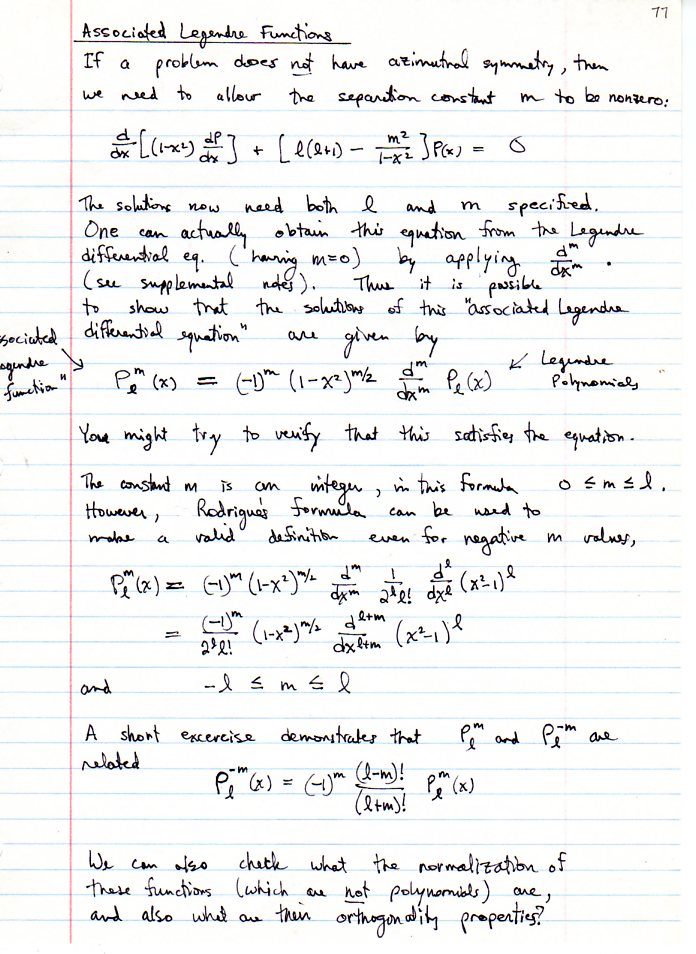 77
Associated Legendre Functions
If a problem does not have azimuthal symmetry, then
we need to allow the separation constant m to be nonzero:
d/dx [(1-x²) dP/dx] + [l(l+1) - m²/(1-x²)] P(x) = 0
The solutions now need both l and m specified.
One can actually obtain this equation from the Legendre
differential eq. (having m=0) by applying d^m/dx^m .
(see supplemental notes). Thus it is possible
to show that the solutions of this "associated Legendre
differential equation" are given by
sociated
egendre
function"
P_l^m (x) = (-1)^m (1-x²)^{m/2} d^m/dx^m P_l(x)
Legendre
Polynomials
You might try to verify that this satisfies the equation.
The constant m is an integer, in this formula 0 ≤ m ≤ l.
However, Rodrigue's formula can be used to
make a valid definition even for negative m values,
P_l^m(x) = (-1)^m (1-x²)^{m/2} d^m/dx^m 1/(2^l l!) d^l/dx^l (x²-1)^l
= (-1)^m/(2^l l!) (1-x²)^{m/2} d^{l+m}/dx^{l+m} (x²-1)^l
and -l ≤ m ≤ l
A short excercise demonstrates that P_l^m and P_l^{-m} are
related
P_l^{-m}(x) = (-1)^m (l-m)!/(l+m)! P_l^m(x)
We can also check what the normalization of
these functions (which are not polynomials) are,
and also what are their orthogonality properties?